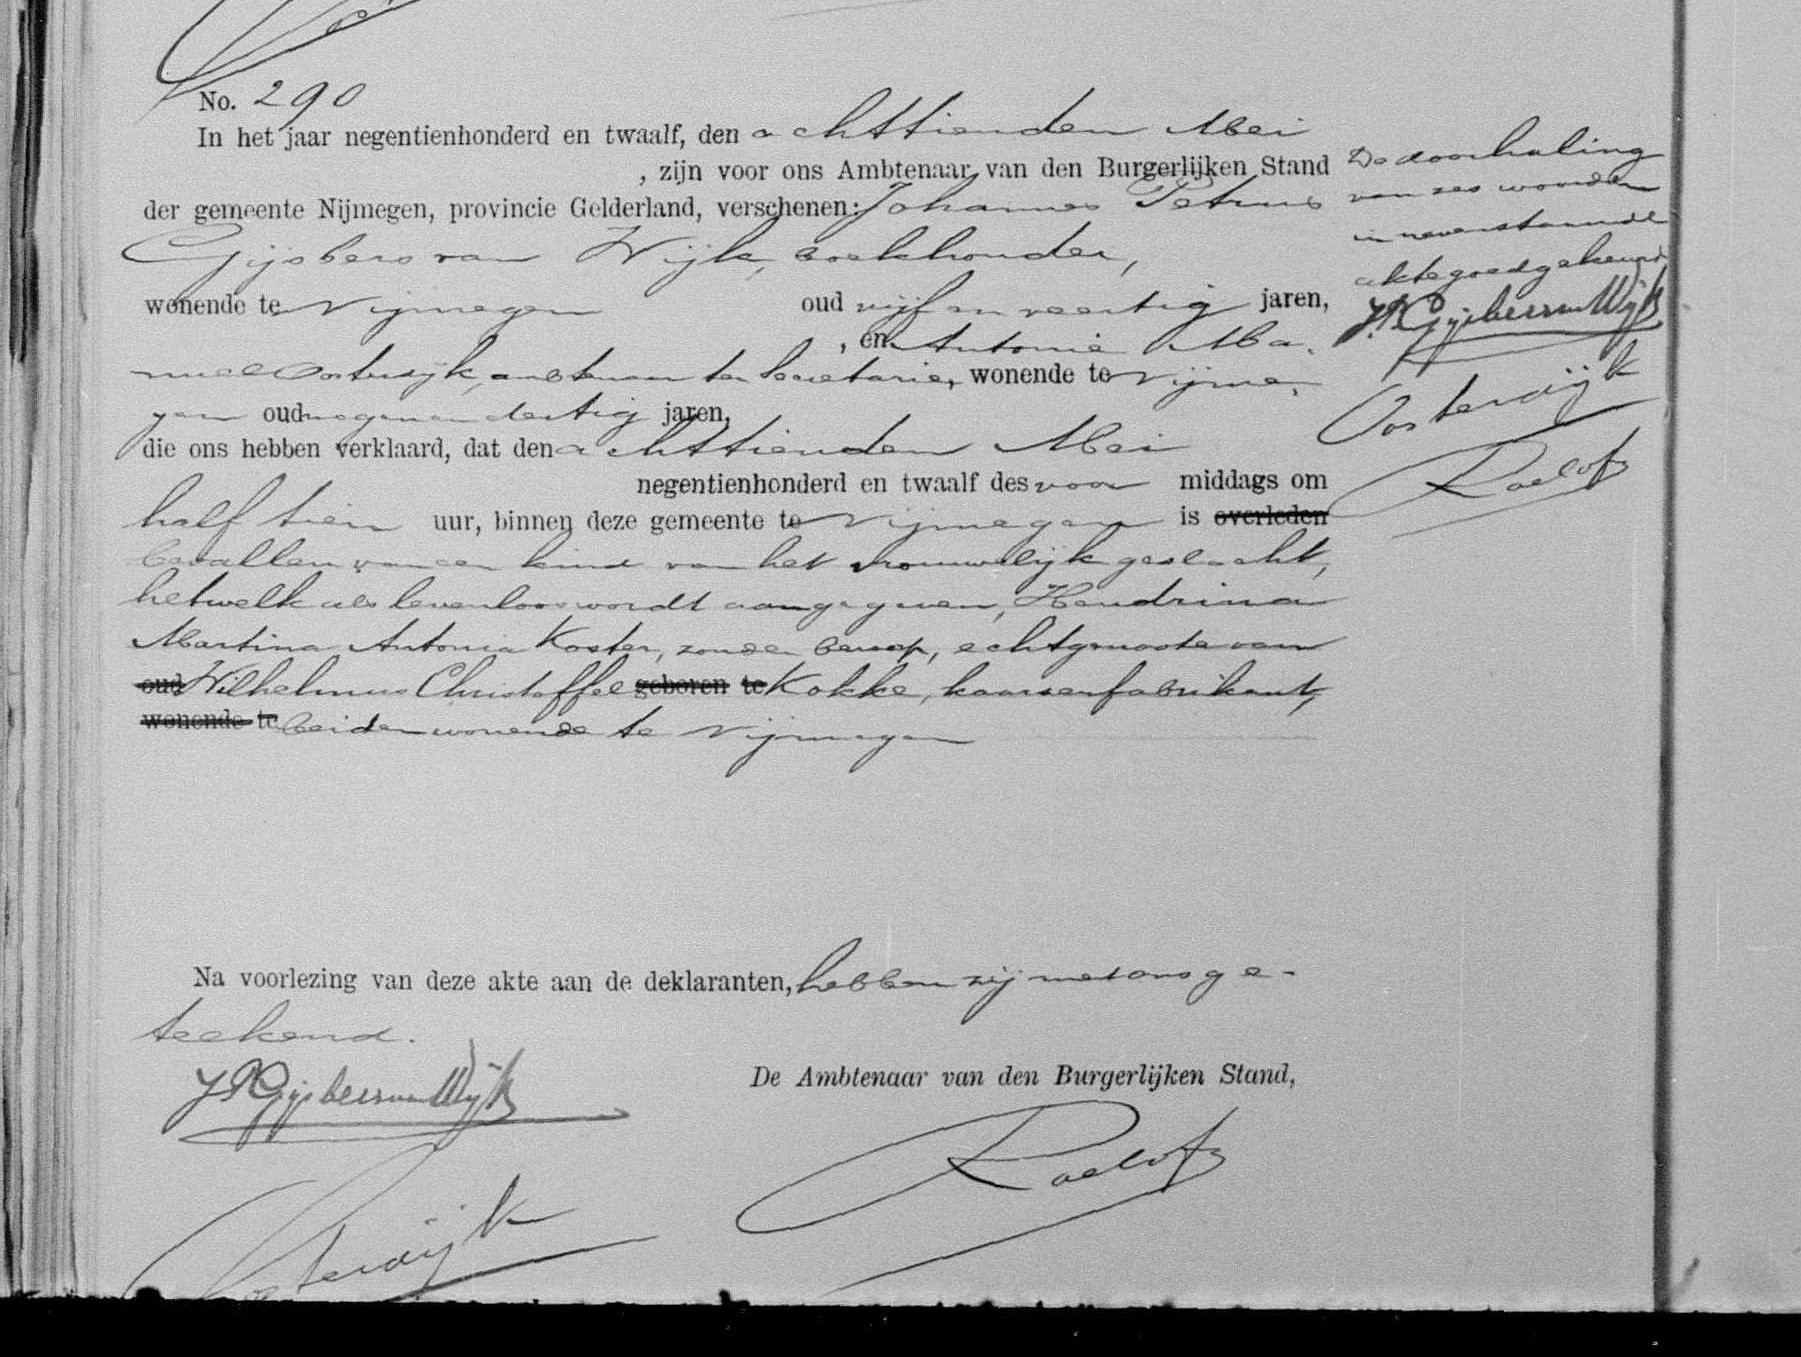 No. 290
In het jaar negentienhonderd en twaalf, den achttienden Mei
, zijn voor ons Ambtenaar van den Burgerlijken Stand
der gemeente Nijmegen, provincie Gelderland, verschenen: Johannes Petrus
Gijsbers van Wijk, boekhouder,
wonende te Nijmegen oud vijf en veertig jaren,
, en Antonie Ma-
nuel Oosterdijk, ambtenaar ter secretarie, wonende te Nijme-
gen oud negen en dertig jaren,
die ons hebben verklaard, dat den achttienden Mei
negentienhonderd en twaalf des voor middags om
half tien uur, binnen deze gemeente te Nijmegen is overleden
bevallen van een kind van het vrouwelijk geslacht,
hetwelk als levenloos wordt aangegeven, Hendrina
Martina Antonia Koster, zonder beroep, echtgenoote van
oud Wilhelmus Christoffel geboren te Kokke, kaarsenfabrikant,
wonende te beiden wonende te Nijmegen
Na voorlezing van deze akte aan de deklaranten, hebben zij met ons ge-
teekend.
JPGijsbersvanWijk
De Ambtenaar van den Burgerlijken Stand,
Roelofs
Oosterdijk
De doorhaling
van zes woorden
in nevenstaande
akte goedgekeurd
JPGijsbersvanWijk
Oosterdijk
Roelofs